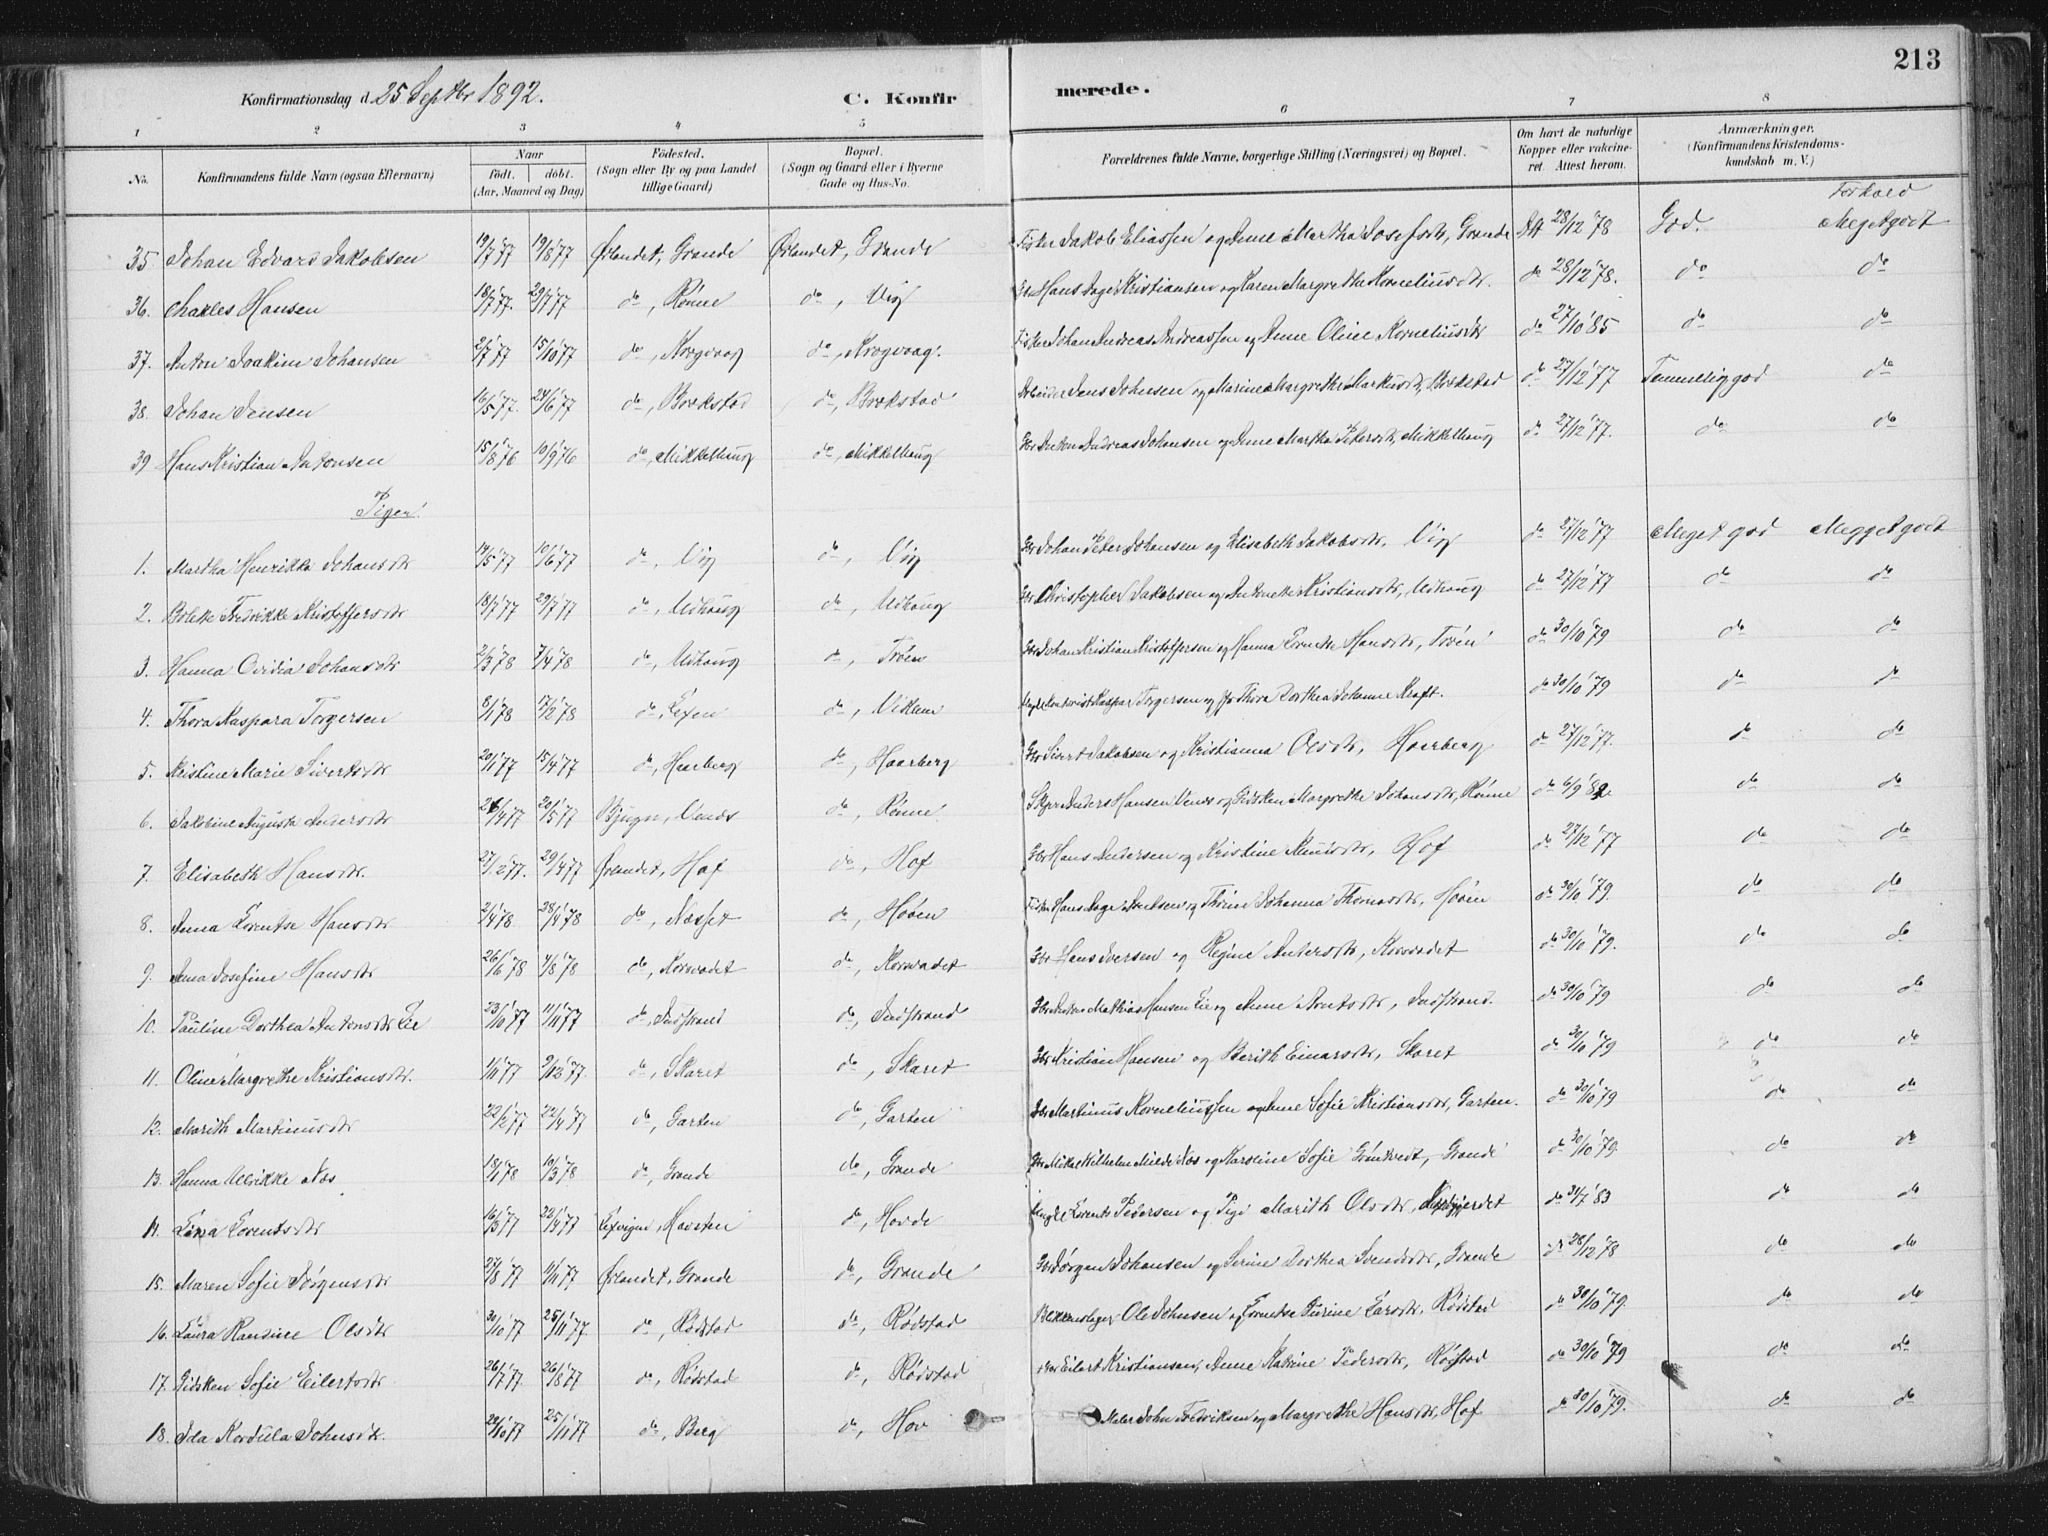 213
Konfirmationsdag d. 25 Septbr 1892.
C. Konfirmerede.
1 2 3 4 5 6 7 8
No. Konfirmandens fulde Navn (ogsaa Efternavn) Naar födt. döbt. (Aar, Maaned og Dag) Födested. (Sogn eller By og paa Landet tillige Gaard) Bopæl. (Sogn og Gaard eller i Byerne Gade og Hus-No. Forældrenes fulde Navne, borgerlige Stilling (Næringsvei) og Bopæl. Om havt de naturlige Kopper eller vakcineret. Attest herom. Anmærkninger. (Konfirmandens Kristendomskundskab m. V.)
Forhold
35 Johan Edvard Jakobsen 19/7 '77 19/8 '77 Ørlandet, Grande Ørlandet, Grande Fisker Jakob Eliassen og Anne Martha Josefsdtr, Grande Att 28/12 '78 God. Meget godt
36. Charles Hansen 18/7 '77. 29/7 '77 do, Rønne do, Vig Hans Aage Kristiansen og Karen Margrethe Korneliusdtr. do 28/12 '78. do do
37. Anton Joakim Johansen 2/7 '77 15/10 '77 do, Krogvaag do, Krogvaag. Fisker Johan Andreas Andreassen og Anne Oline Korneliusdtr do 27/10 '85 do do
38. Johan Jensen 16/5 '77. 24/6 '77 do, Brekstad do, Brekstad Arbeider Jens Johnsen og Marine Margrethe Markusdtr, Brekstad do 27/12 '77 Temmelig god do
39 Hans Kristian Antonsen 15/8 '76 10/9 '76 do, Mikkelhaug do, Mikkelhaug Gbr Anton Andreas Johansen og Anne Martha Petersdtr, Mikkelhaug do 27/12 '77. do do
Piger.
1. Martha Henrikka Johansdtr 14/5 '77 10/6 '77 do, Vig do, Vig Gbr Johan Peter Johansen og Elisabeth Jakobsdtr, Vig do 27/12 '77 Meget god Megget godt
2. Bolette Fredrikke Kristoffersdtr 18/7 '77 29/7 '77 do, Udhaug do, Udhaug Gbr Christopher Jakobsen og Antonette Kristiansdtr, Udhaug do 27/12 '77 do do
3. Hanna Ovidia Johansdtr 2/3 '78 7/4 '78 do, Udhaug do, Trøen Gbr Johan Kristian Kristoffersen og Hanna Hansdtr, Trøen do 30/10 '79 do do
4. Thora Kaspara Torgersen 8/1 '78 17/2 '78 do, do, Viklem Kaspar Torgersen og Thora Dorthea Johanne Kraft. do 30/10 '79 do do
5. Kristine Marie Sivertsdtr 20/1 '77 15/4 '77 do, Haarberg do, Haarberg Gbr Sivert Jakobsen og Kristianna Olsdtr, Haarberg do 27/12 '77. do do
6. Jakobine Augusta Andersdtr 26/4 '77 20/5 '77 Bjugn, do, Rønne Skpr Anders Hansen og Gidsken Margrethe Johansdtr, Rønne do 6/9 do do
7. Elisabeth Hansdtr. 27/2 '77. 29/4 '77 Ørlandet, Hof do, Hof Gbr Hans Andersen og Kristine, Hof do 27/12 '77 do do
8. Anna Lorentse Hansdtr 2/4 '78 28/4 '78 do, Næsset do, Hoøen Fisker Hans Aage og Johanna Thomasdtr, Hoøen do 30/10 '79. do do
9. Anna Josefine Hansdtr 26/6 '78 4/8 '78 do, Korsvadet do, Korsvadet Gbr Hans Iversen og Regine Andersdtr, Korsvadet do 30/10 '79. do do
10. Pauline Dorthea Antonsdtr Lie 23/10 '77 11/11 '77 do, Indstrand do, Indstrand Gbr Anton Mathias Hansen Lie og Anne Arntsdtr, Indstrand. do 30/10 '79 do do
11. Oline Margrethe Kristiansdtr. 1/11 '77 9/12 '77. do, Skaret do, Skaret Gbr Kristian Hansen og Berith Einarsdtr, Skaret do 30/10 '79 do do
12. Marith Martinusdtr 22/2 '77 22/4 '77 do, Garten do, Garten Gbr Martinus Korneliussen og Anne Sofie Kristiansdtr, Garten. do 30/10 '79 do do
13. Hanna Ulrikke Næs 13/1 '78 10/3 '78 do, Grande do, Grande Gbr Mikal Wilhelm Milde Næs og Karoline Sofie, Grande do 30/10 '79. do do
14. Lina Lorentsdtr 16/3 '77 22/4 '77 Lexvigen, do, Hovde Lorents Pedersen og Pige Marith Olsdtr, do 31/7 '83 do do
15. Maren Sofie Jørgensdtr 27/8 '77 4/11 '77 Ørlandet, Grande do, Grande Gbr Jørgen Johansen og Serine Dorthea Svendsdtr, Grande do 28/12 '78 do do
16. Laura Ransine Olsdtr 31/10 '77 25/11 '77. do, Rødstad do, Rødstad Blikkenslager Ole Johnsen og Lorentse Larsdtr, Rødstad do 30/10 '79. do do
17. Gidsken Sofie Eilertsdtr 26/7 '77. 26/8 '77 do, Rødstad do, Rødstad Eilert Kristiansen, Anne Katrine Pedersdtr, Rødstad do 30/10 '79 do do
18. Ida Kordula Johnsdtr. 22/10 '77 25/11 '77 do, Berg do, Hov Maler John Fredriksen og Margrethe Hansdtr, Hof do 30/10 '79. do do